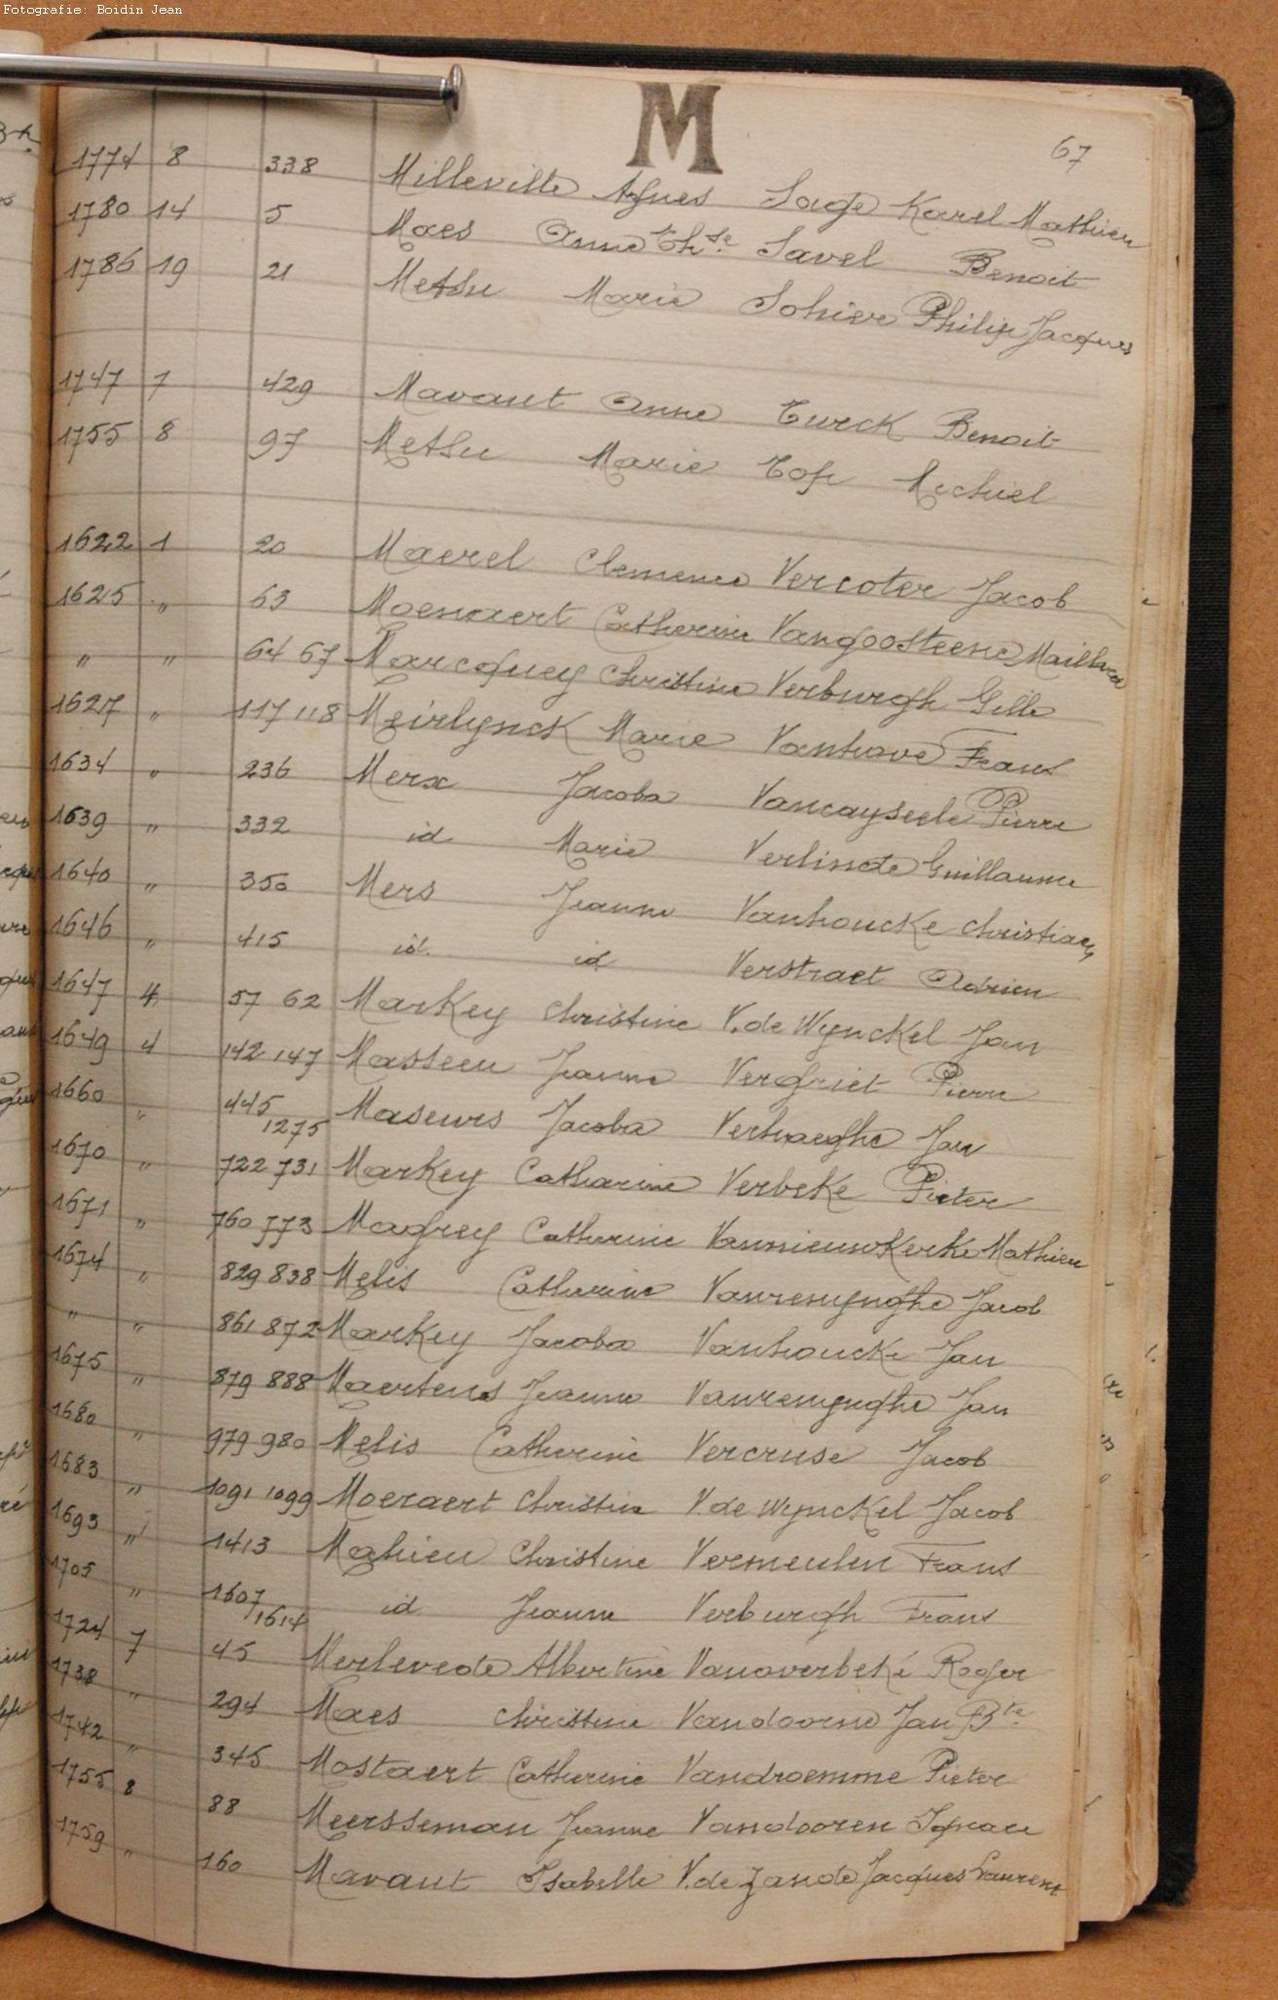 Fotografie: Boidin Jean
M
67
1774 8 338 Milleville Agnes Sage Karel Mathieu
1780 14 5 Maes Anne Th.se Savel Benoit
1786 19 21 Metsu Marie Sohier Philip Jacques
1747 7 429 Mavaut Anne Turck Benoit
1755 8 97 Metsu Marie Top Michiel
1622 1 20 Maerel Clemence Vercoter Jacob
1625 " 63 Moenaert Catherine Vangoosteene
" " 64 67 Marcquey Christine Verburgh Gille
1627 " 117 118 Meirlynck Marie Vanhove Frans
1634 " 236 Merx Jacoba Vancayseele Pierre
1639 " 332 id Marie Verlinde Guillaume
1640 " 350 Mers Jeanne Vanhoucke Christiaen
1646 " 415 id. id Verstraet Adrien
1647 4 57 62 Markey Christine V. de Wynckel Jan
1649 4 142 147 Masseeu Jeanne Vergriet Pierre
1660 " 445 1275 Maseurs Jacoba Verhaeghe Jan
1670 " 722 731 Markey Catharine Verbeke Pieter
1671 " 760 773 Magrey Catherine Vannieuwkerke Mathieu
1674 " 829 838 Melis Catherine Vanrenynghe Jacob
" " 861 872 Markey Jacoba Vanhoucke Jan
1675 " 879 888 Maertens Jeanne Vanrenynghe Jan
1680 " 979 980 Melis Catherine Vercruse Jacob
1683 " 1091 1099 Moeraert Christine V. de Wynckel Jacob
1693 " 1413 Mahieu Christine Vermeulen Frans
1705 " 1607 1614 id Jeanne Verburgh Frans
1724 7 45 Merlevede Albertine Vanoverbeke Roger
1738 " 294 Maes Christine Vandoorne Jan Bte
1742 " 345 Mostaert Catherine Vandroemme Pieter
1755 8 88 Meersseman Jeanne Vandooren Ignace
1759 " 160 Mavaut Isabelle V. de Zande Jacques Laurent